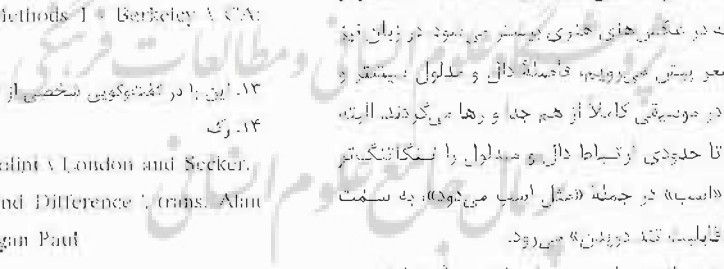 ه در عکس‌های هنری بیشتر می‌شود در زبان نیز
معر پیش می‌رویم، فاصلهٔ دال و مدلول بیشتر و
در موسیقی کاملاً از هم جدا و رها می‌گردند. البته
تا حدودی ارتباط دال و مدلول را تنگاتنگ‌تر
«اسب» در جملهٔ «مثل اسب می‌دود»، به سمت
قابلیت تند دویدن» می‌رود.
Methods I - Berkeley \ CA:
۱۳. این را در گفت‌وگویی شخصی از
۱۴. رک
\ London and Secker.
nd Difference \, trans. Alan
gan Paul
پژوهشگاه علوم انسانی و مطالعات فرهنگی
پرتال جامع علوم انسانی